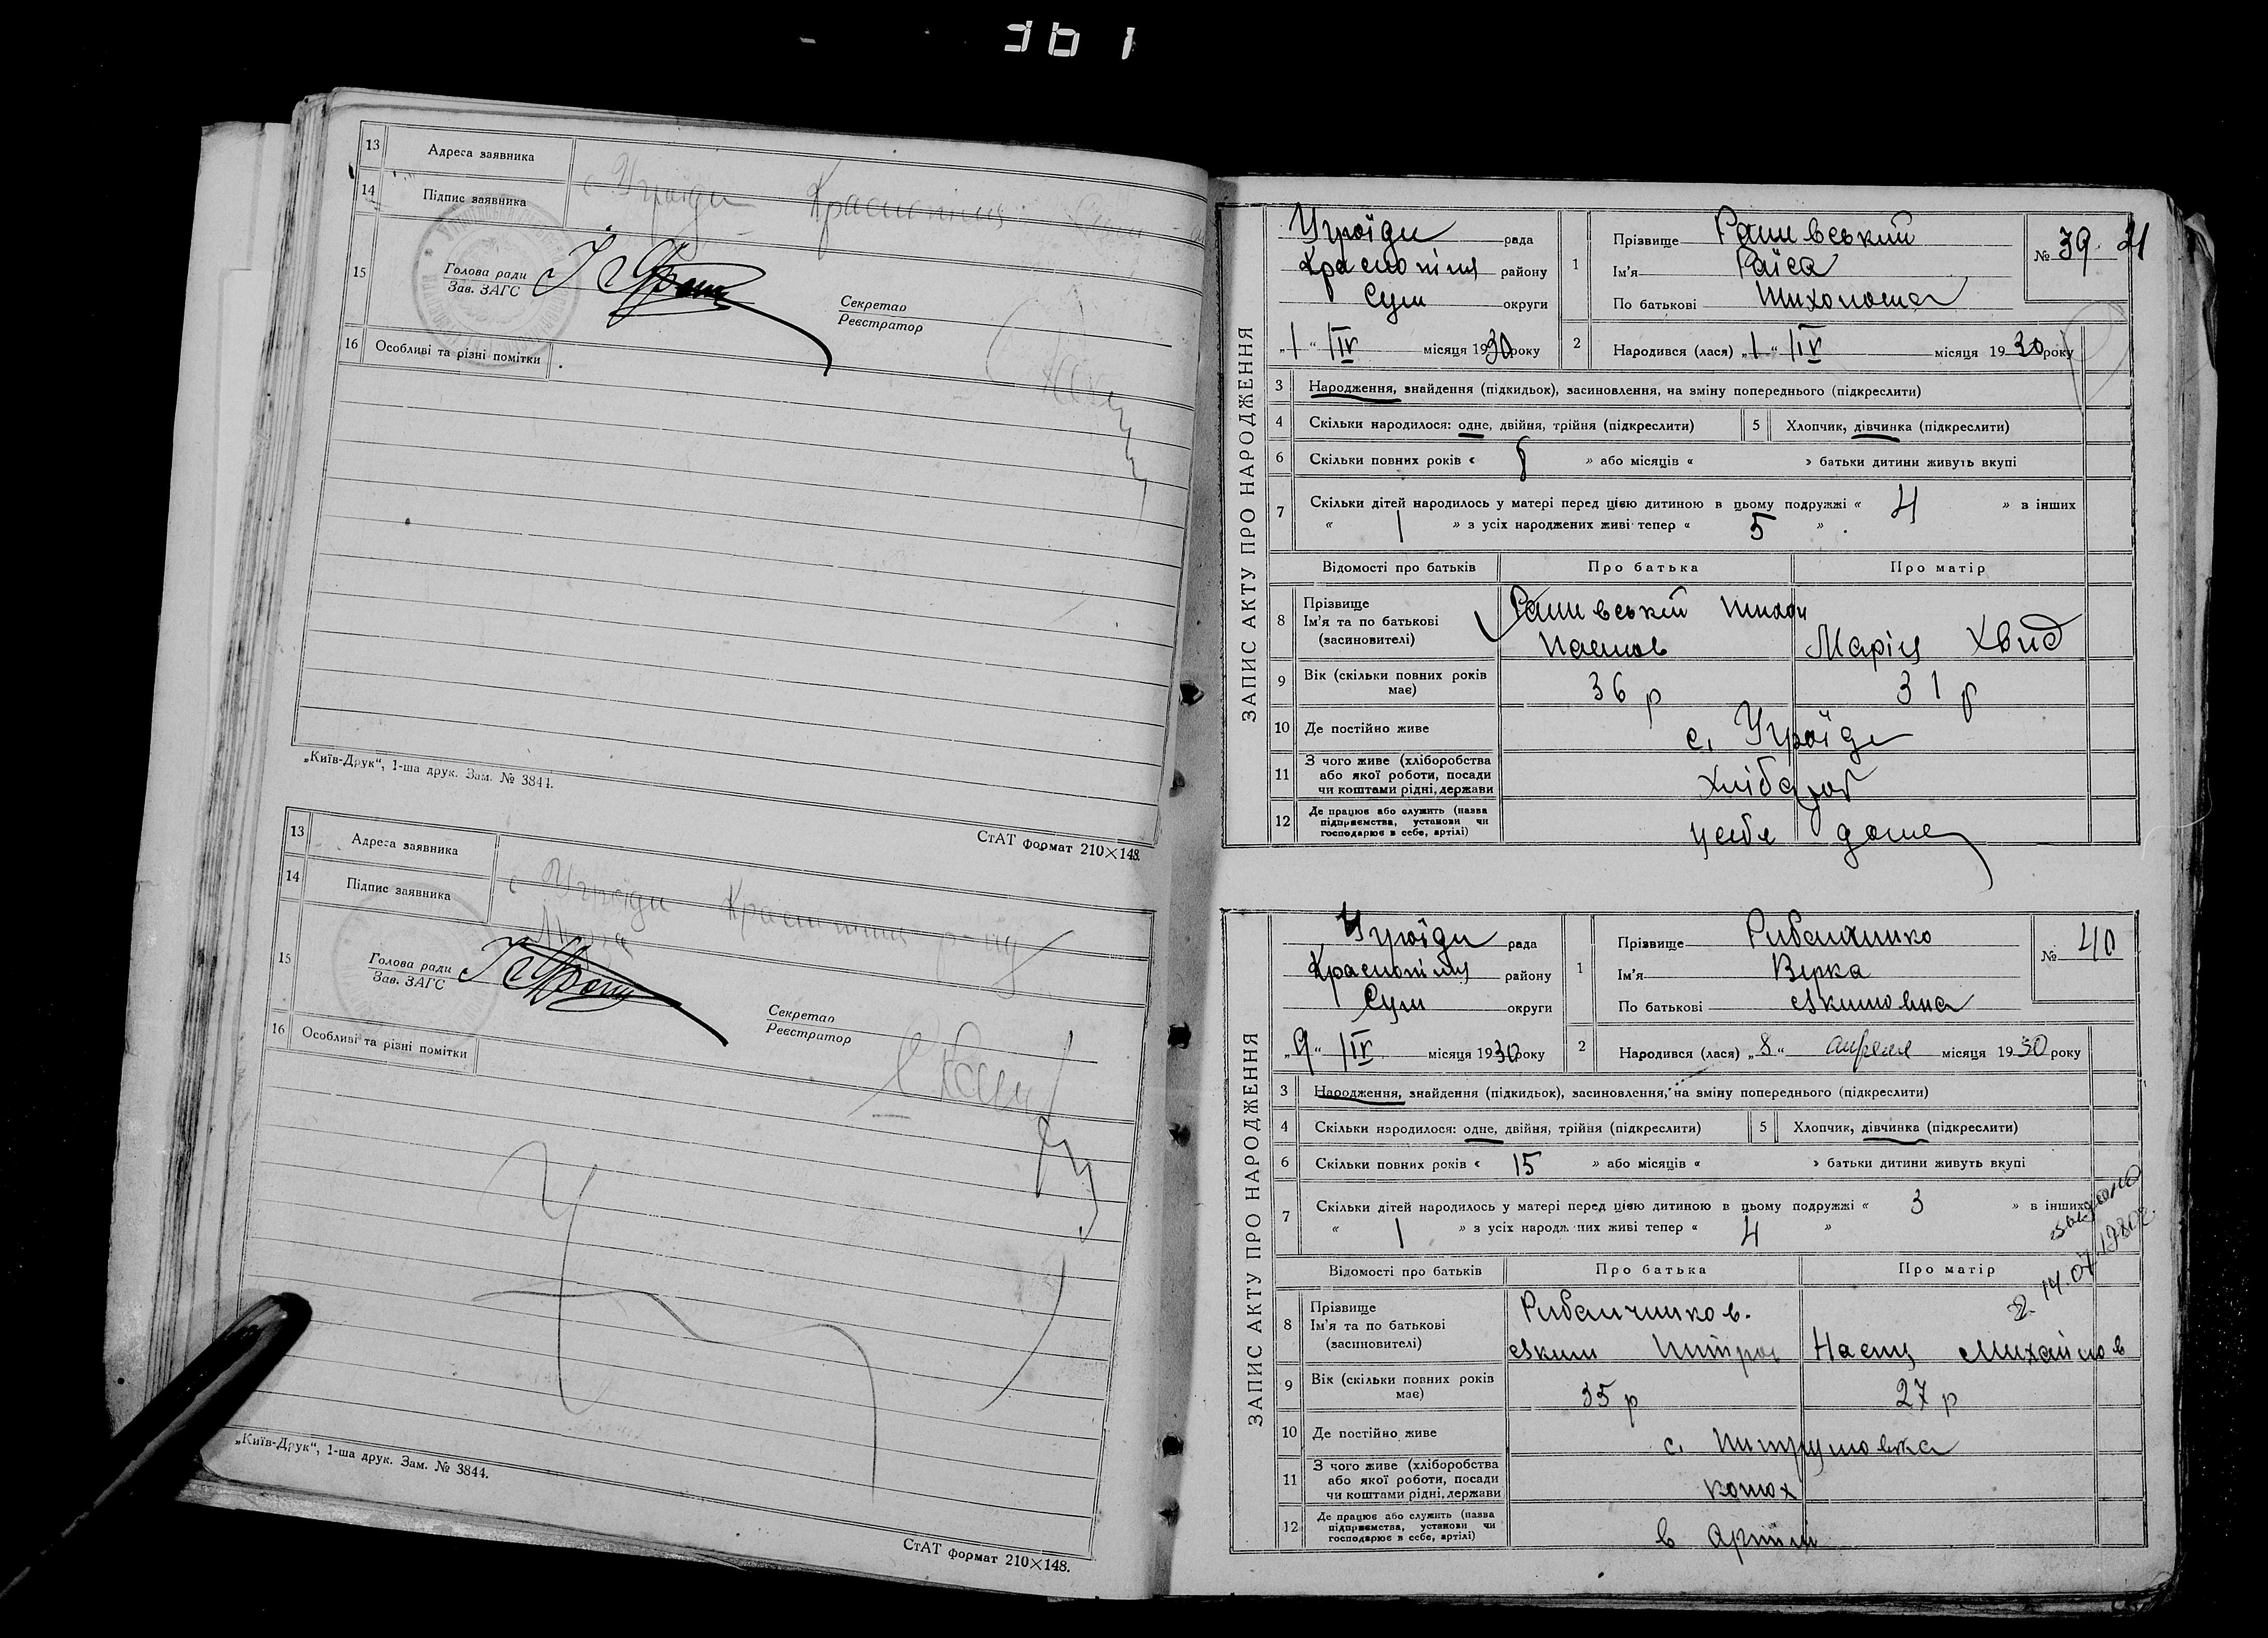 361
13 Адреса заявника
с Угроїди Краснопіль
14 Підпис заявника
15 Голова ради
Зав. ЗАГС
Секретар
Реєстратор
16 Особливі та різні помітки
„Київ-Друк“, 1-ша друк. Зам. № 3844.
СтАТ формат 210×148.
13 Адреса заявника
с Угроїди
14 Підпис заявника
15 Голова ради
Зав. ЗАГС
Секретар
Реєстратор
16 Особливі та різні помітки
„Київ-Друк“, 1-ша друк. Зам. № 3844.
СтАТ формат 210×148.
ЗАПИС АКТУ ПРО НАРОДЖЕННЯ
Угроїди рада
Краснопіля району
Сум округи
„1“ IV місяця 1930 року
1 Прізвище Рашевський
Ім'я Раїса
По батькові
№ 39
2 Народився (лася) „1“ IV місяця 1930 року
3 Народження, знайдення (підкидьок), засиновлення, на зміну попереднього (підкреслити)
4 Скільки народилося: одне, двійня, трійня (підкреслити) 5 Хлопчик, дівчинка (підкреслити)
6 Скільки повних років « » або місяців « » батьки дитини живуть вкупі
7 Скільки дітей народилось у матері перед цією дитиною в цьому подружжі « 4 » в інших
« 1 » з усіх народжених живі тепер « 5 »
Відомості про батьків Про батька Про матір
8 Прізвище
Ім'я та по батькові
(засиновителі)
Марія Хвид
9 Вік (скільки повних років має) 36 р 31 р
10 Де постійно живе с. Угроїди
11 З чого живе (хліборобства
або якої роботи, посади
чи коштами рідні, держави
Хлібороб
12 Де працює або служить (назва
підприємства, установи чи
господарює в себе, артілі)
у себе дома
ЗАПИС АКТУ ПРО НАРОДЖЕННЯ
Угроїди рада
Краснопіля району
Сум округи
„9“ IV місяця 1930 року
1 Прізвище Рибалчинко
Ім'я Вірка
По батькові Якимовна
№ 40
2 Народився (лася) „8“ апреля місяця 1930 року
3 Народження, знайдення (підкидьок), засиновлення, на зміну попереднього (підкреслити)
4 Скільки народилося: одне, двійня, трійня (підкреслити) 5 Хлопчик, дівчинка (підкреслити)
6 Скільки повних років « 15 » або місяців « » батьки дитини живуть вкупі
7 Скільки дітей народилось у матері перед цією дитиною в цьому подружжі « 3 » в інших
« 1 » з усіх народжених живі тепер « 4 »
Відомості про батьків Про батька Про матір
8 Прізвище
Ім'я та по батькові
(засиновителі)
Рибалчинков.
Яким Питров Настя Михайлов
9 Вік (скільки повних років має) 35 р 27 р
10 Де постійно живе с. Питрушовка
11 З чого живе (хліборобства
або якої роботи, посади
чи коштами рідні, держави
конюх
12 Де працює або служить (назва
підприємства, установи чи
господарює в себе, артілі)
в Артілі